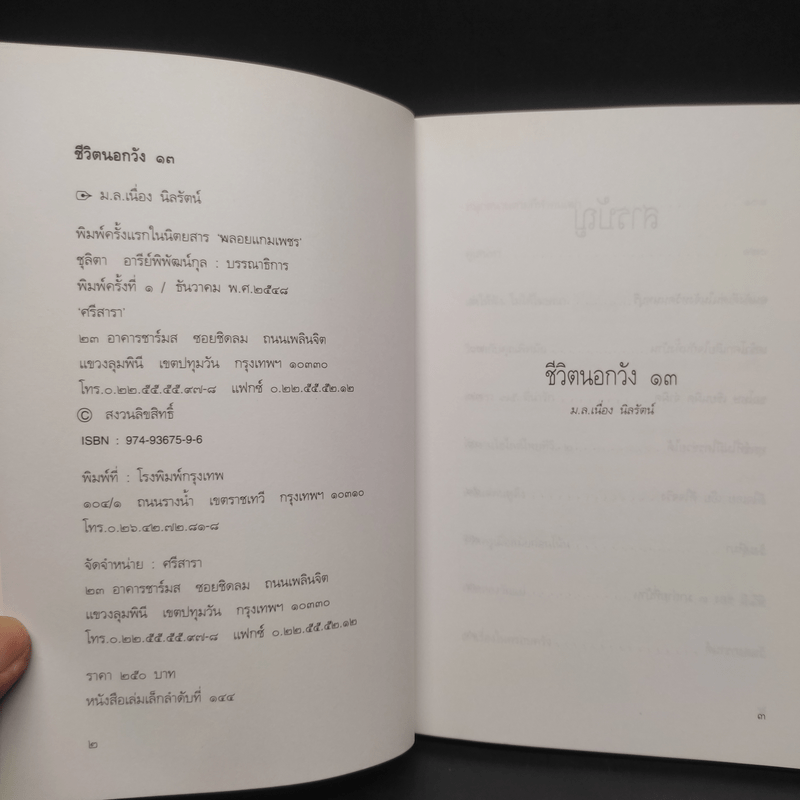 ชีวิตนอกวัง ๑๓
ม.ล.เนื่อง นิลรัตน์
พิมพ์ครั้งแรกในนิตยสาร 'พลอยแกมเพชร'
ชุลิตา อารีย์พิพัฒน์กุล : บรรณาธิการ
พิมพ์ครั้งที่ ๑ / ธันวาคม พ.ศ.๒๕๔๘
'ศรีสารา'
๒๓ อาคารชาร์มส ซอยชิดลม ถนนเพลินจิต
แขวงลุมพินี เขตปทุมวัน กรุงเทพฯ ๑๐๓๓๐
โทร.๐.๒๒.๕๕.๕๕.๙๗-๘ แฟกซ์ ๐.๒๒.๕๕.๕๒.๑๒
© สงวนลิขสิทธิ์
ISBN : 974-93675-9-6
พิมพ์ที่ : โรงพิมพ์กรุงเทพ
๑๐๙/๑ ถนนรางน้ำ เขตราชเทวี กรุงเทพฯ ๑๐๓๑๐
โทร.๐.๒๖.๔๒.๗๒.๘๑-๘
จัดจำหน่าย : ศรีสารา
๒๓ อาคารชาร์มส ซอยชิดลม ถนนเพลินจิต
แขวงลุมพินี เขตปทุมวัน กรุงเทพฯ ๑๐๓๓๐
โทร.๐.๒๒.๕๕.๕๕.๙๗-๘ แฟกซ์ ๐.๒๒.๕๕.๕๒.๑๒
ราคา ๒๕๐ บาท
หนังสือเล่มเล็กลำดับที่ ๑๔๔
๒
ชีวิตนอกวัง ๑๓
ม.ล.เนื่อง นิลรัตน์
๓